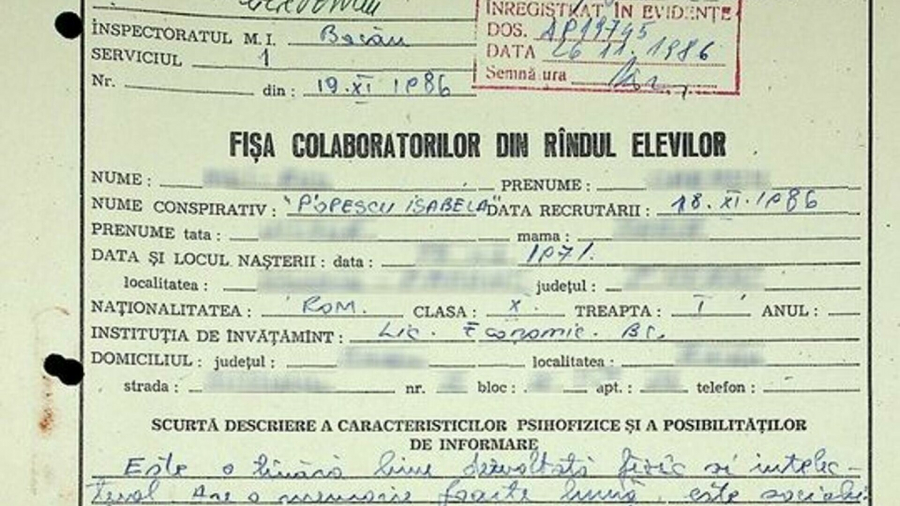 ÎNREGISTRAT ÎN EVIDENȚE
INSPECTORATUL M. I. Bacău
DOS. AP19745
SERVICIUL 1
DATA 26 11. 1986
Semnătura
Nr. din: 19. XI 1986
FIȘA COLABORATORILOR DIN RÎNDUL ELEVILOR
NUME: PRENUME:
NUME CONSPIRATIV: "POPESCU ISABELA" DATA RECRUTĂRII: 18. XI. 1986
PRENUME tata: mama:
DATA ȘI LOCUL NAȘTERII: data: 1971.
localitatea: județul:
NAȚIONALITATEA: ROM. CLASA: X. TREAPTA: I ANUL:
INSTITUȚIA DE ÎNVĂȚĂMÎNT: Lic. Economic. BC.
DOMICILIUL: județul: localitatea:
strada: nr. bloc: apt.: telefon:
SCURTĂ DESCRIERE A CARACTERISTICILOR PSIHOFIZICE ȘI A POSIBILITĂȚILOR
DE INFORMARE
Este o tînără bine dezvoltată fizic și intelec-
tual. Are o memorie foarte bună, este sociabi